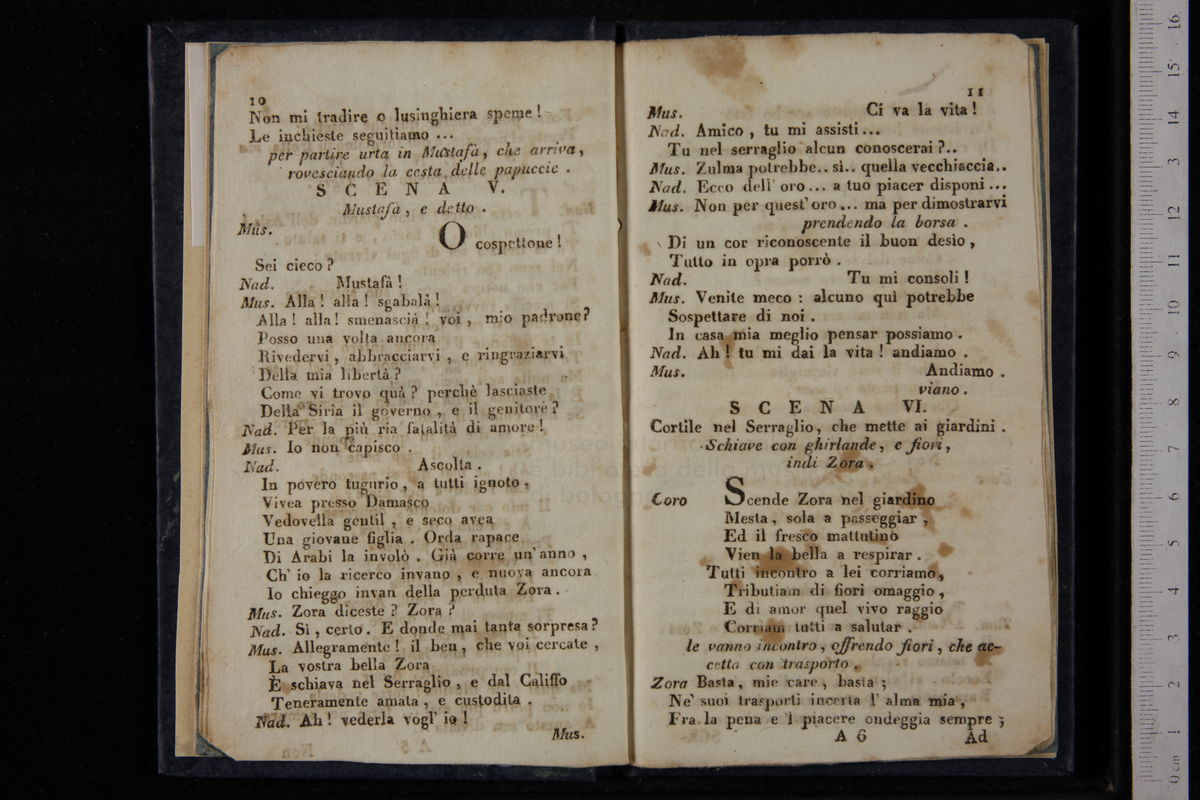 10
Non mi tradire o lusinghiera speme!
Le inchieste seguitiamo ...
per partire urta in Mustafà, che arriva,
rovesciando la cesta delle papuccie.
SCENA V.
Mustafà, e detto.
Mus. O cospettone!
Sei cieco?
Nad. Mustafà!
Mus. Alla! alla! sgabalà!
Alla! alla! smenascià! voi, mio padrone?
Posso una volta ancora
Rivedervi, abbracciarvi, e ringraziarvi
Della mia libertà?
Come vi trovo quà? perchè lasciaste
Della Siria il governo, e il genitore?
Nad. Per la più ria fatalità di amore!
Mus. Io non capisco.
Nad. Ascolta.
In povero tugurio, a tutti ignoto,
Vivea presso Damasco
Vedovella gentil, e seco avea
Una giovane figlia. Orda rapace
Di Arabi la involò. Già corre un' anno,
Ch' io la ricerco invano, e nuova ancora
Io chieggo invan della perduta Zora.
Mus. Zora diceste? Zora?
Nad. Sì, certo. E donde mai tanta sorpresa?
Mus. Allegramente! il ben, che voi cercate,
La vostra bella Zora
È schiava nel Serraglio, e dal Califfo
Teneramente amata, e custodita.
Nad. Ah! vederla vogl' io!
Mus.
11
Mus. Ci va la vita!
Nad. Amico, tu mi assisti...
Tu nel serraglio alcun conoscerai?..
Mus. Zulma potrebbe.. sì.. quella vecchiaccia..
Nad. Ecco dell' oro... a tuo piacer disponi...
Mus. Non per quest' oro... ma per dimostrarvi
prendendo la borsa.
Di un cor riconoscente il buon desìo,
Tutto in opra porrò.
Nad. Tu mi consoli!
Mus. Venite meco: alcuno quì potrebbe
Sospettare di noi.
In casa mia meglio pensar possiamo.
Nad. Ah! tu mi dai la vita! andiamo.
Mus. Andiamo.
viano.
SCENA VI.
Cortile nel Serraglio, che mette ai giardini.
Schiave con ghirlande, e fiori,
indi Zora.
Coro Scende Zora nel giardino
Mesta, sola a passeggiar,
Ed il fresco mattutino
Vien la bella a respirar.
Tutti incontro a lei corriamo,
Tributiam di fiori omaggio,
E di amor quel vivo raggio
Corriam tutti a salutar.
le vanno incontro, offrendo fiori, che ac-
cetta con trasporto.
Zora Basta, mie care, basta;
Ne' suoi trasporti incerta l' alma mia,
Fra la pena e 'l piacere ondeggia sempre;
A 6 Ad